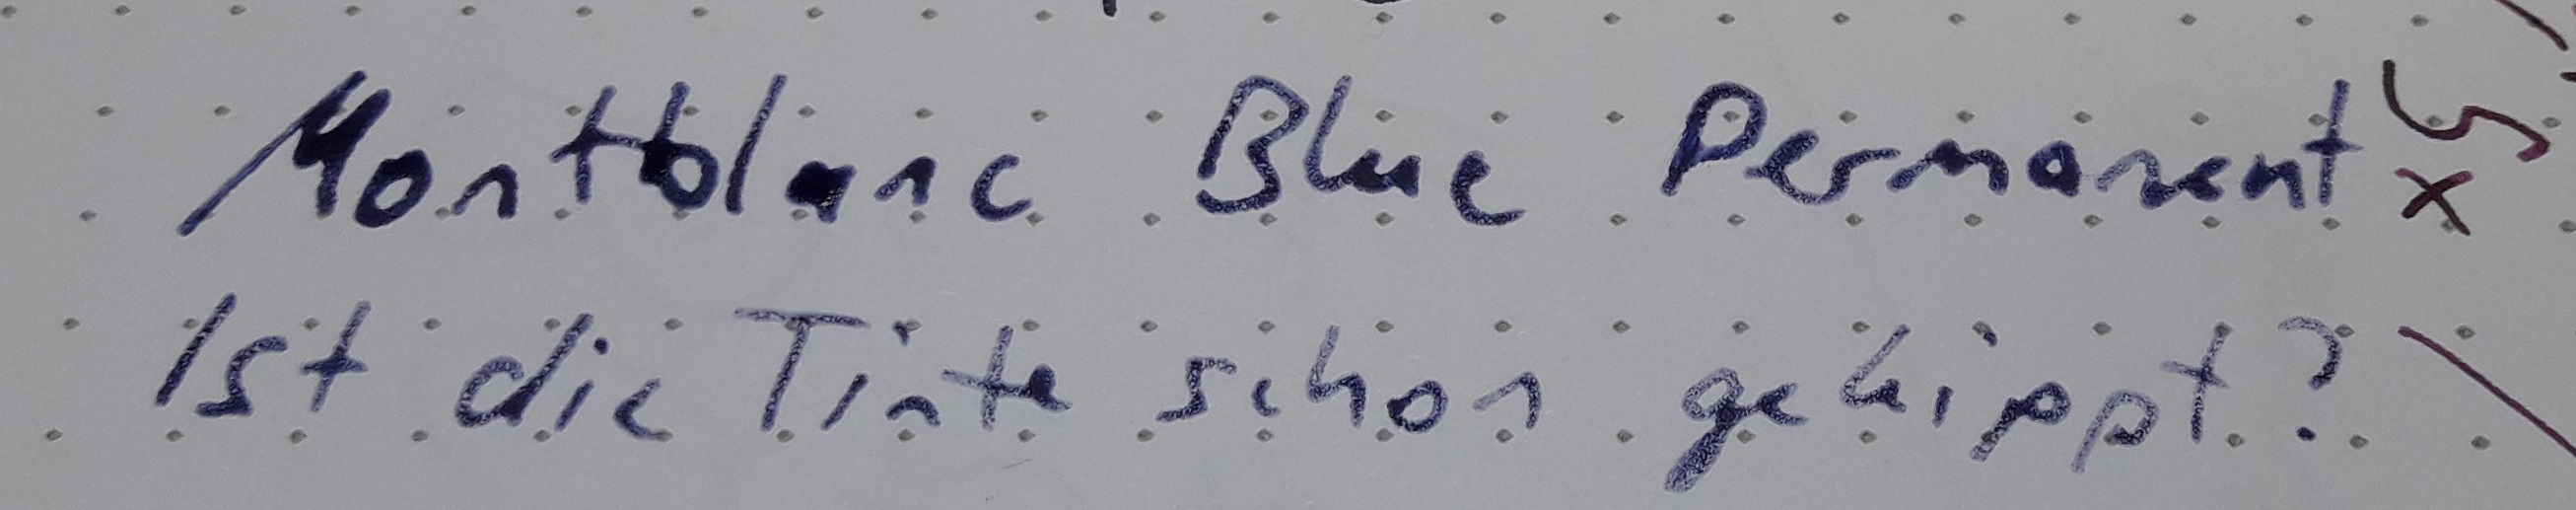 Montblanc Blue Permanent
Ist die Tinte schon gekippt?